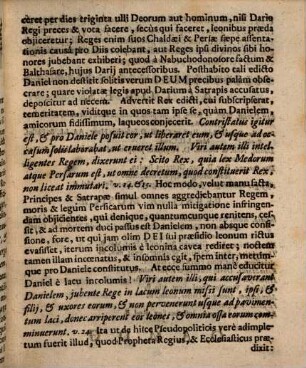 ceret per dies triginta ulli Deorum aut hominum, nisi Dario
Regi preces & vota facere, secùs qui faceret, leonibus præda
objiceretur; Reges enim suos Chaldæi & Persæ sæpe assentationis
causâ pro Diis colebant, aut Reges ipsi divinos sibi honores
jubebant exhiberi; quod à Nabuchodonosore factum &
Balthasare, hujus Darij antecessoribus. Posthabito tali edicto
Daniel non destitit solitis verum DEUM precibus palàm obsecrare;
quare violatæ legis apud Darium à Satrapis accusatus
deposcitur ad necem. Advertit Rex edicti, cui subscripserat,
temeritatem, viditque in quos tam ipse se, quàm Danielem,
amicorum fidissimum, laqueos conjecerit. Contristatus igitur
est, & pro Daniele posuit cor, ut liberaret eum, & usque ad occasum
solis laborabat, ut erueret illum. Viri autem illi intelligentes
Regem, dixerunt ei: Scito Rex, quia lex Medorum
atque Persarum est, ut omne decretum, quod constituerit Rex,
non liceat immutari. v. 14. & 15. Hoc modo, velut manu facta,
Principes & Satrapæ simul omnes aggrediebantur Regem,
moris & legum Persicarum vim nulla mitigatione infringendam
objicientes, qui denique, quantumcunque renitens, cessit,
& ad mortem duci passus est Danielem, non absque concussione,
fore, ut qui jam olim DEI sui præsidio leonum rictus
evasisset, iterum incolumis è leonina cavea rediret; noctem
tamen illam incœnatus, & insomnis egit, spem inter, metumque
pro Daniele constitutus. At ecce summo manè educitur
Daniel è lacu incolumis! Viri autem illi, qui accusaverant
Danielem, jubente Rege in lacum leonum missi sunt, ipsi, &
filij, & uxores eorum, & non pervenerunt usque ad pavimentum
laci, donec arriperent eos leones, & omnia ossa eorum comminuerunt.
v. 24. Ita ut de hisce Pseudopoliticis verè adimpletum
fuerit illud, quod Propheta Regius, & Ecclesiasticus præ-
dixit: